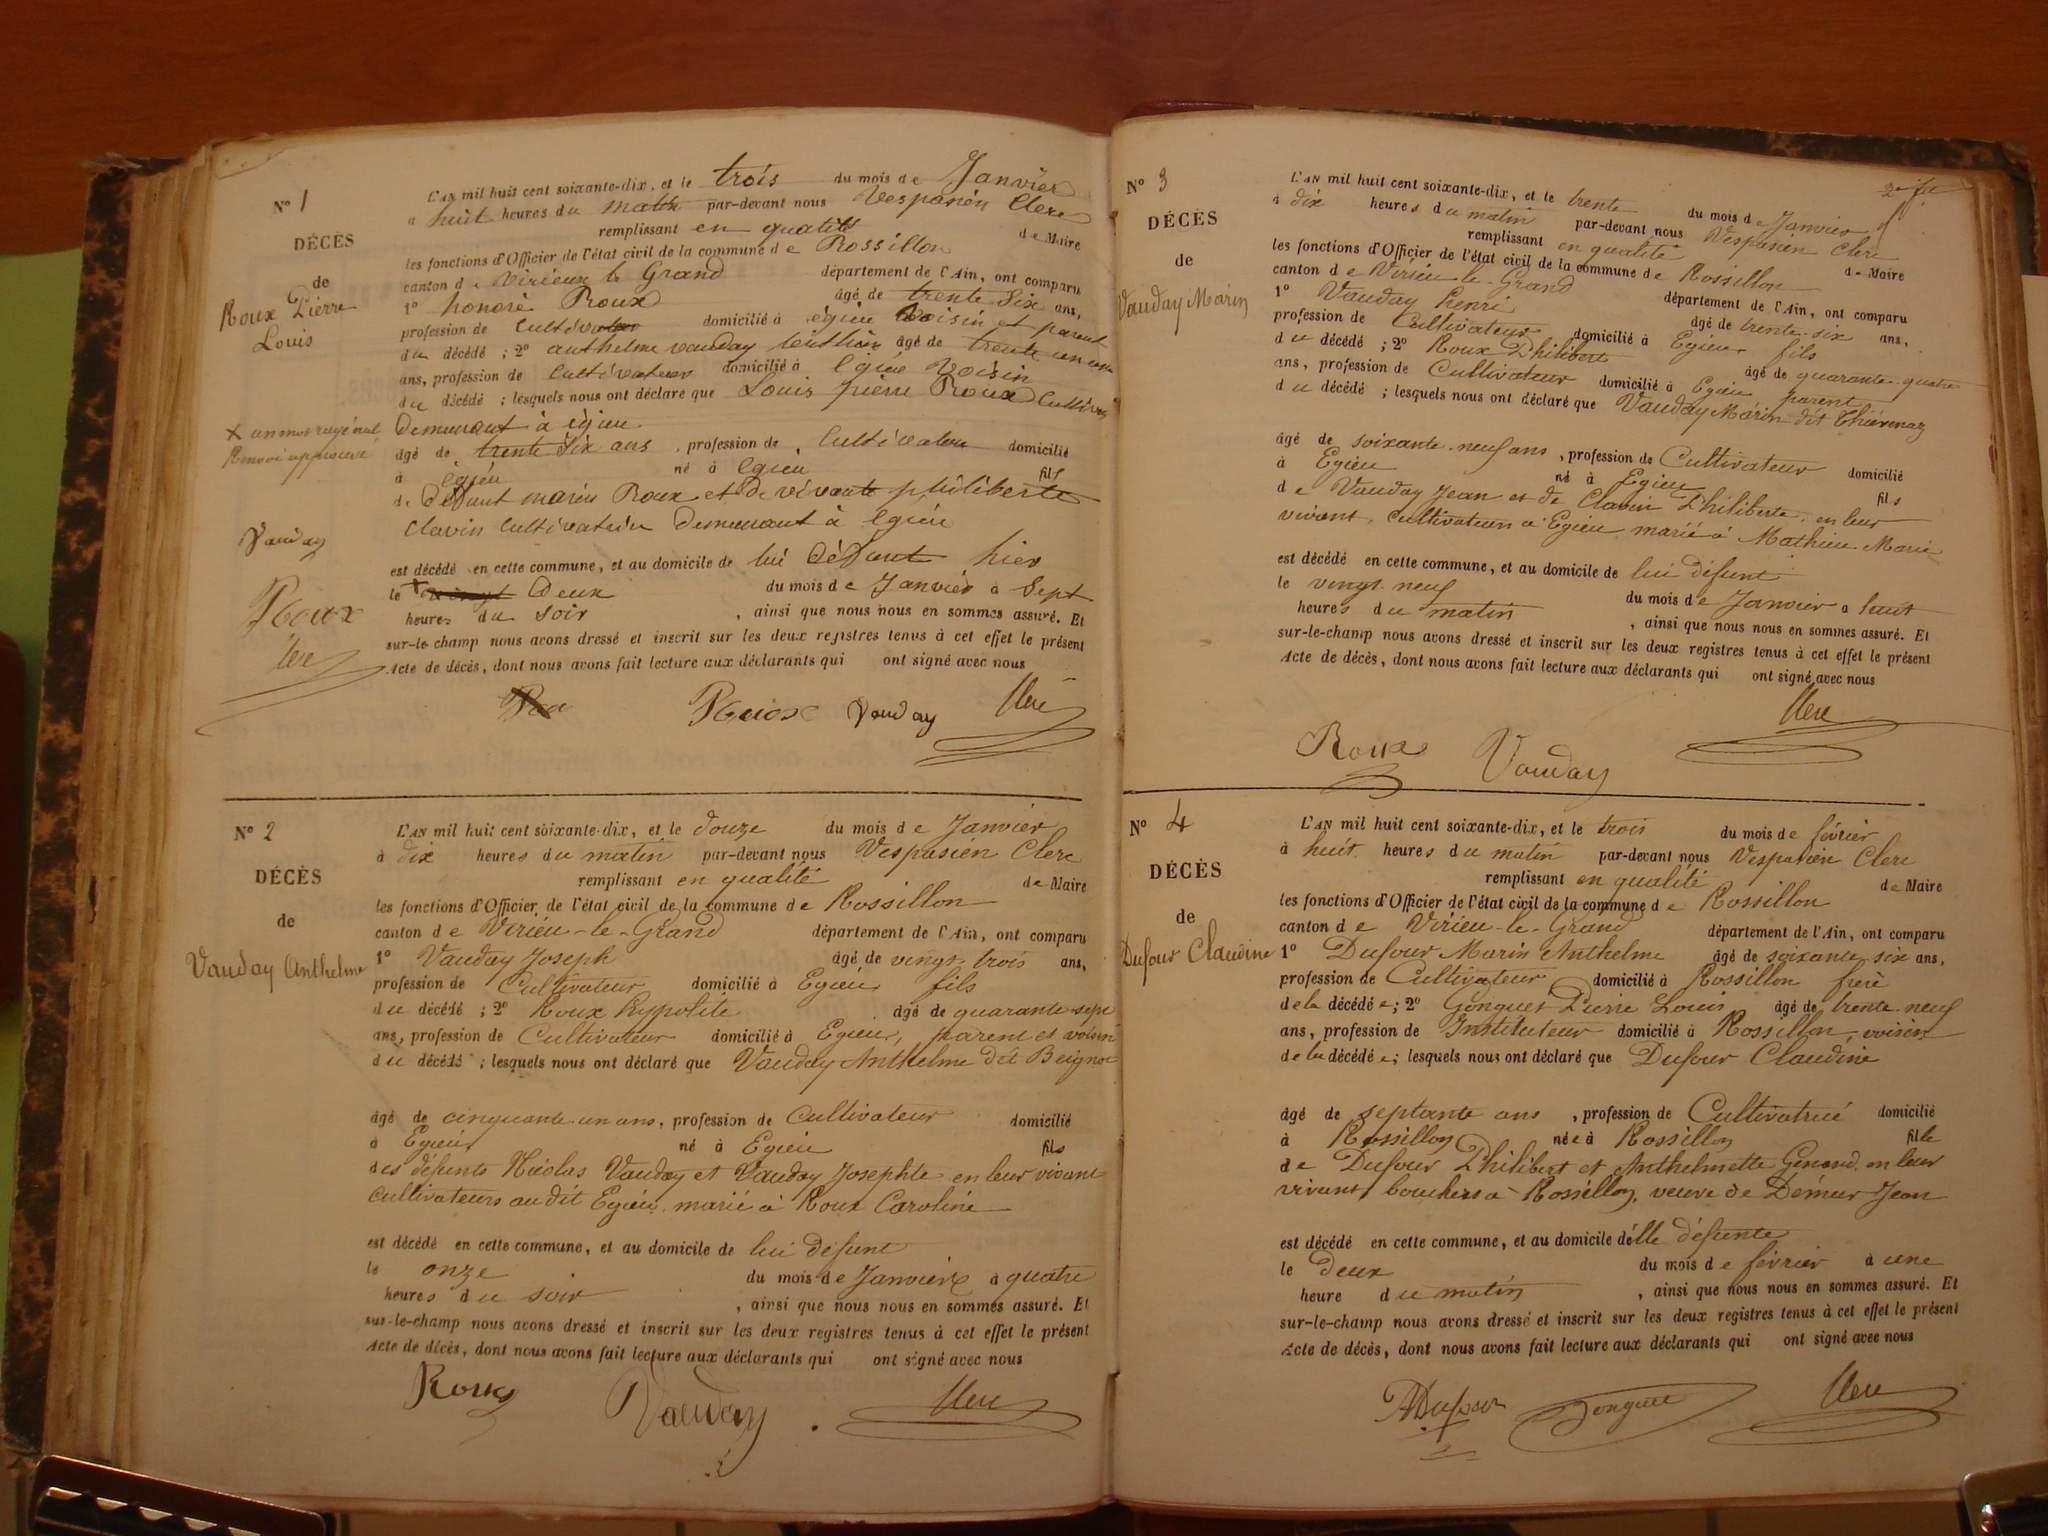 N° 1
DÉCÈS
de
Roux Pierre
Louis
L'AN mil huit cent soixante-dix, et le trois du mois de Janvier
a huit heures du matin par-devant nous Vespasien Clerc
remplissant en qualité de Maire
les fonctions d'Officier de l'état civil de la commune de Rossillon
canton de Virieux le Grand département de l'Ain, ont comparu
1° honoré Roux âgé de trente six ans,
profession de Cultivateur domicilié à égieu voisin et parent
du décédé ; 2° anthelme vauday âgé de trente un
ans, profession de Cultivateur domicilié à Egieu Voisin
du décédé ; lesquels nous ont déclaré que Louis pierre Roux
demeurant à égieu
âgé de trente six ans, profession de Cultivateur domicilié
à égieu né à Egieu fils
de Défunt marin Roux et De vivante philiberte
Clavin Cultivatrice Demeurant à Egieu
est décédé en cette commune, et au domicile de lui défunt hier
le Deux du mois de Janvier à Sept
heures du soir, ainsi que nous nous en sommes assuré. Et
sur-le-champ nous avons dressé et inscrit sur les deux registres tenus à cet effet le présent
Acte de décès, dont nous avons fait lecture aux déclarants qui ont signé avec nous
x un mot rayé nul
Renvoi approuvé
Vauday
Roux
Roux Vauday Clerc
N° 2
DÉCÈS
de
Vauday Anthelme
L'AN mil huit cent soixante-dix, et le douze du mois de Janvier
à dix heures du matin par-devant nous Vespasien Clerc
remplissant en qualité de Maire
les fonctions d'Officier de l'état civil de la commune de Rossillon
canton de Virieu-le-Grand département de l'Ain, ont comparu
1° Vauday Joseph âgé de vingt trois ans,
profession de Cultivateur domicilié à Egieu fils
du décédé ; 2° Roux hypolite âgé de quarante sept
ans, profession de Cultivateur domicilié à Egieu, parent et voisin
du décédé ; lesquels nous ont déclaré que Vauday Anthelme dit
âgé de cinquante un ans, profession de Cultivateur domicilié
à Egieu né à Egieu fils
des défunts Nicolas Vauday et Vauday Josephte en leur vivant
cultivateurs au dit Egieu marié à Roux Caroline
est décédé en cette commune, et au domicile de lui défunt
le onze du mois de Janvier à quatre
heures du soir, ainsi que nous nous en sommes assuré. Et
sur-le-champ nous avons dressé et inscrit sur les deux registres tenus à cet effet le présent
Acte de décès, dont nous avons fait lecture aux déclarants qui ont signé avec nous
Roux Vauday Clerc
N° 3
DÉCÈS
de
Vauday Marin
L'AN mil huit cent soixante-dix, et le trente du mois de Janvier
à dix heures du matin par-devant nous Vespasien Clerc
remplissant en qualité de Maire
les fonctions d'Officier de l'état civil de la commune de Rossillon
canton de Virieu-le-Grand département de l'Ain, ont comparu
1° Vauday henri âgé de trente-six ans,
profession de Cultivateur domicilié à Egieu fils
du décédé ; 2° Roux Philibert âgé de quarante quatre
ans, profession de Cultivateur domicilié à Egieu parent
du décédé ; lesquels nous ont déclaré que Vauday Marin dit Thiévenaz
âgé de soixante-neuf ans, profession de Cultivateur domicilié
à Egieu né à Egieu fils
de Vauday Jean et de Clavin Philiberte en leur
vivant, cultivateurs à Egieu, marié à Mathieu Marie
est décédé en cette commune, et au domicile de lui défunt
le vingt-neuf du mois de Janvier à huit
heures du matin, ainsi que nous nous en sommes assuré. Et
sur-le-champ nous avons dressé et inscrit sur les deux registres tenus à cet effet le présent
Acte de décès, dont nous avons fait lecture aux déclarants qui ont signé avec nous
Roux Vauday Clerc
N° 4
DÉCÈS
de
Dufour Claudine
L'AN mil huit cent soixante-dix, et le trois du mois de février
à huit heures du matin par-devant nous Vespasien Clerc
remplissant en qualité de Maire
les fonctions d'Officier de l'état civil de la commune de Rossillon
canton de Virieu-le-Grand département de l'Ain, ont comparu
1° Dufour Marin Anthelme âgé de soixante six ans,
profession de Cultivateur domicilié à Rossillon frère
de la décédée ; 2° Gonguet Pierre Louis âgé de trente-neuf
ans, profession de Instituteur domicilié à Rossillon, voisin
de la décédée ; lesquels nous ont déclaré que Dufour Claudine
âgé de septante ans, profession de Cultivatrice domicilié
à Rossillon née à Rossillon fille
de Dufour Philibert et Anthelmette Genand en leur
vivant bouchers à Rossillon, veuve de Demeur Jean
est décédé en cette commune, et au domicile d'elle défunte
le deux du mois de février à une
heure du matin, ainsi que nous nous en sommes assuré. Et
sur-le-champ nous avons dressé et inscrit sur les deux registres tenus à cet effet le présent
Acte de décès, dont nous avons fait lecture aux déclarants qui ont signé avec nous
MDufour Gonguet Clerc